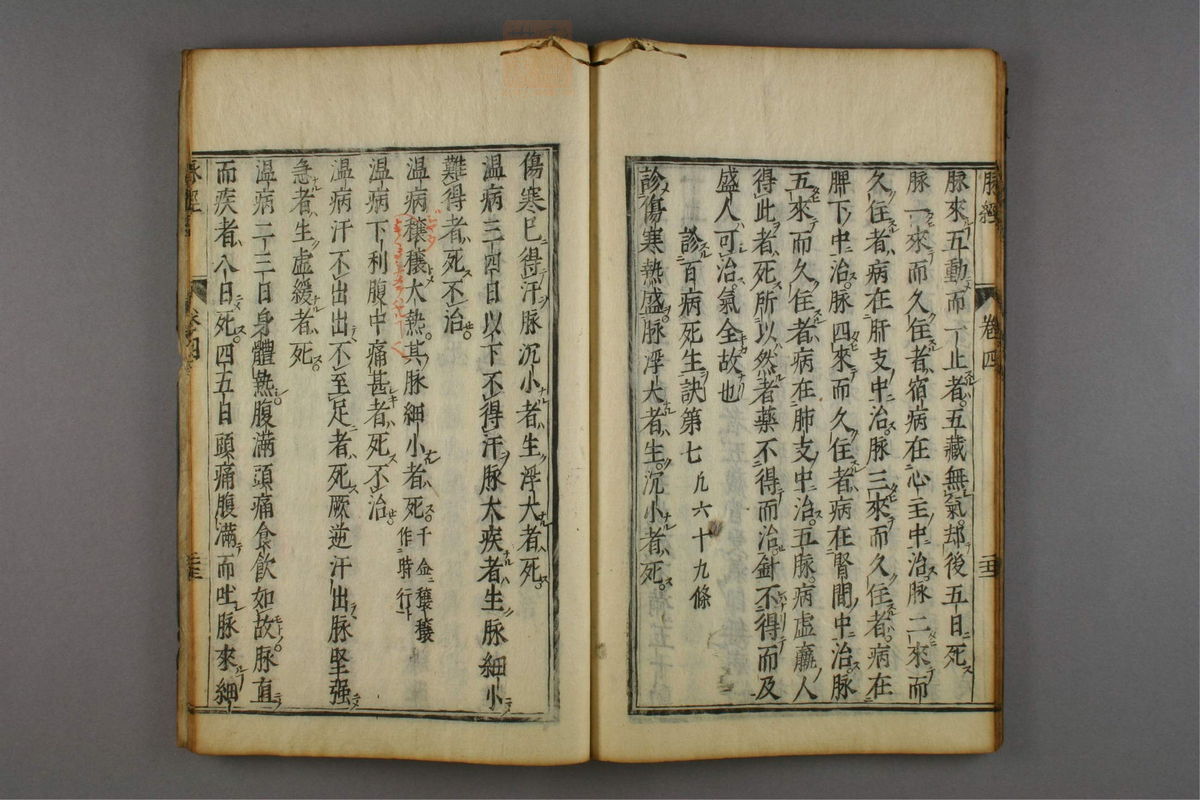 脉經
卷四
脉來五動而一止者五藏無氣却後五日死
脉一來而久住者宿病在心主中治脉二來而
久住者病在肝支中治脉三來而久住者病在
脾下中治脉四來而久住者病在腎間中治脉
五來而久住者病在肺支中治五脉病虛羸人
得此者死所以然者藥不得而治針不得而及
盛人可治氣全故也
診百病死生訣第七凡六十九條
診傷寒熱盛脉浮大者生沉小者死
傷寒已得汗脉沉小者生浮大者死
温病三四日以下不得汗脉大疾者生脉細小
難得者死不治
温病穰穰大熱其脉細小者死千金穰穰作時行
温病下利腹中痛甚者死不治
温病汗不出出不至足者死厥逆汗出脉堅强
急者生虛緩者死
温病二三日身體熱腹滿頭痛食飲如故脉直
而疾者八日死四五日頭痛腹滿而吐脉來細
脉經
卷四